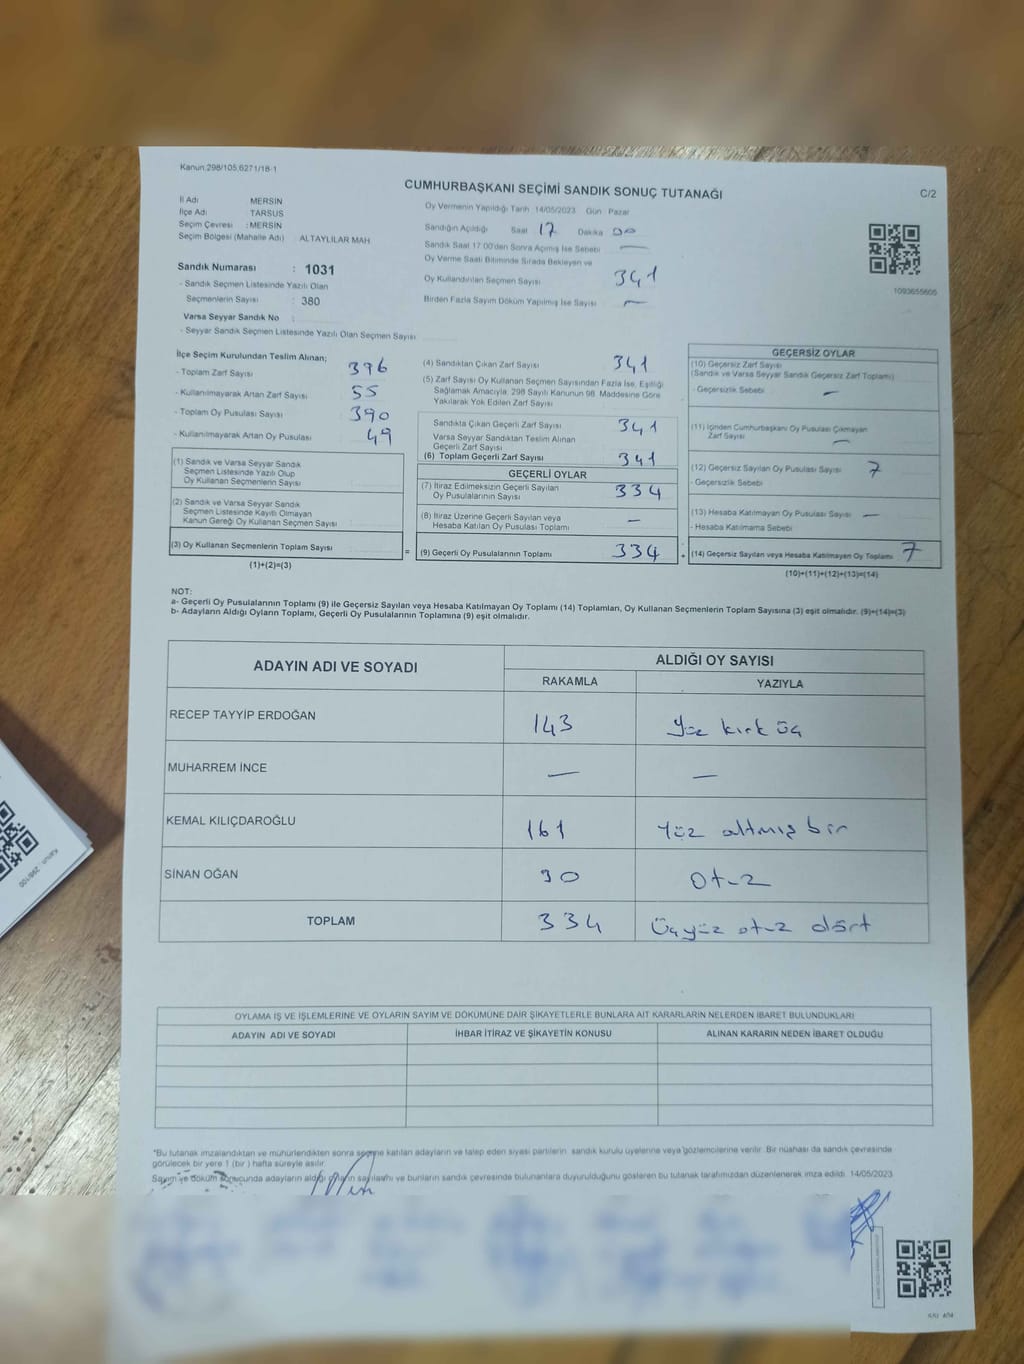 Kanun:298/105,6271/18-1
CUMHURBAŞKANI SEÇİMİ SANDIK SONUÇ TUTANAĞI
C/2
İl Adı MERSİN
İlçe Adı TARSUS
Seçim Çevresi : MERSİN
Seçim Bölgesi (Mahalle Adı) ALTAYLILAR MAH
Sandık Numarası : 1031
- Sandık Seçmen Listesinde Yazılı Olan
Seçmenlerin Sayısı : 380
Varsa Seyyar Sandık No :
- Seyyar Sandık Seçmen Listesinde Yazılı Olan Seçmen Sayısı
Oy Vermenin Yapıldığı Tarih 14/05/2023 Gün Pazar
Sandığın Açıldığı Saat 17 Dakika 00
Sandık Saat 17:00'den Sonra Açılmış İse Sebebi —
Oy Verme Saati Bitiminde Sırada Bekleyen ve
Oy Kullandırılan Seçmen Sayısı 341
Birden Fazla Sayım Döküm Yapılmış İse Sayısı —
1093655605
İlçe Seçim Kurulundan Teslim Alınan;
- Toplam Zarf Sayısı 396
- Kullanılmayarak Artan Zarf Sayısı 55
- Toplam Oy Pusulası Sayısı 390
- Kullanılmayarak Artan Oy Pusulası 49
(1) Sandık ve Varsa Seyyar Sandık
Seçmen Listesinde Yazılı Olup
Oy Kullanan Seçmenlerin Sayısı
(2) Sandık ve Varsa Seyyar Sandık
Seçmen Listesinde Kayıtlı Olmayan
Kanun Gereği Oy Kullanan Seçmen Sayısı
(3) Oy Kullanan Seçmenlerin Toplam Sayısı
(1)+(2)=(3)
=
(4) Sandıktan Çıkan Zarf Sayısı 341
(5) Zarf Sayısı Oy Kullanan Seçmen Sayısından Fazla İse, Eşitliği
Sağlamak Amacıyla, 298 Sayılı Kanunun 98. Maddesine Göre
Yakılarak Yok Edilen Zarf Sayısı
Sandıkta Çıkan Geçerli Zarf Sayısı 341
Varsa Seyyar Sandıktan Teslim Alınan
Geçerli Zarf Sayısı
(6) Toplam Geçerli Zarf Sayısı 341
GEÇERLİ OYLAR
(7) İtiraz Edilmeksizin Geçerli Sayılan
Oy Pusulalarının Sayısı 334
(8) İtiraz Üzerine Geçerli Sayılan veya
Hesaba Katılan Oy Pusulası Toplamı —
(9) Geçerli Oy Pusulalarının Toplamı 334
+
GEÇERSİZ OYLAR
(10) Geçersiz Zarf Sayısı
(Sandık ve Varsa Seyyar Sandık Geçersiz Zarf Toplamı)
- Geçersizlik Sebebi —
(11) İçinden Cumhurbaşkanı Oy Pusulası Çıkmayan
Zarf Sayısı —
(12) Geçersiz Sayılan Oy Pusulası Sayısı 7
- Geçersizlik Sebebi
(13) Hesaba Katılmayan Oy Pusulası Sayısı —
- Hesaba Katılmama Sebebi
(14) Geçersiz Sayılan veya Hesaba Katılmayan Oy Toplamı 7
(10)+(11)+(12)+(13)=(14)
NOT:
a- Geçerli Oy Pusulalarının Toplamı (9) ile Geçersiz Sayılan veya Hesaba Katılmayan Oy Toplamı (14) Toplamları, Oy Kullanan Seçmenlerin Toplam Sayısına (3) eşit olmalıdır. (9)+(14)=(3)
b- Adayların Aldığı Oyların Toplamı, Geçerli Oy Pusulalarının Toplamına (9) eşit olmalıdır.
ADAYIN ADI VE SOYADI
ALDIĞI OY SAYISI
RAKAMLA YAZIYLA
RECEP TAYYİP ERDOĞAN 143 Yüz kırk üç
MUHARREM İNCE — —
KEMAL KILIÇDAROĞLU 161 Yüz altmış bir
SİNAN OĞAN 30 Otuz
TOPLAM 334 Üçyüz otuz dört
OYLAMA İŞ VE İŞLEMLERİNE VE OYLARIN SAYIM VE DÖKÜMÜNE DAİR ŞİKAYETLERLE BUNLARA AİT KARARLARIN NELERDEN İBARET BULUNDUKLARI
ADAYIN ADI VE SOYADI İHBAR İTİRAZ VE ŞİKAYETİN KONUSU ALINAN KARARIN NEDEN İBARET OLDUĞU
*Bu tutanak imzalandıktan ve mühürlendikten sonra seçime katılan adayların ve talep eden siyasi partilerin sandık kurulu üyelerine veya gözlemcilerine verilir. Bir nüshası da sandık çevresinde
görülecek bir yere 1 (bir) hafta süreyle asılır.
Sayım ve döküm sonucunda adayların aldığı oyların sayılarını ve bunların sandık çevresinde bulunanlara duyurulduğunu gösteren bu tutanak tarafımızdan düzenlenerek imza edildi. 14/05/2023
Kanun: 298/100